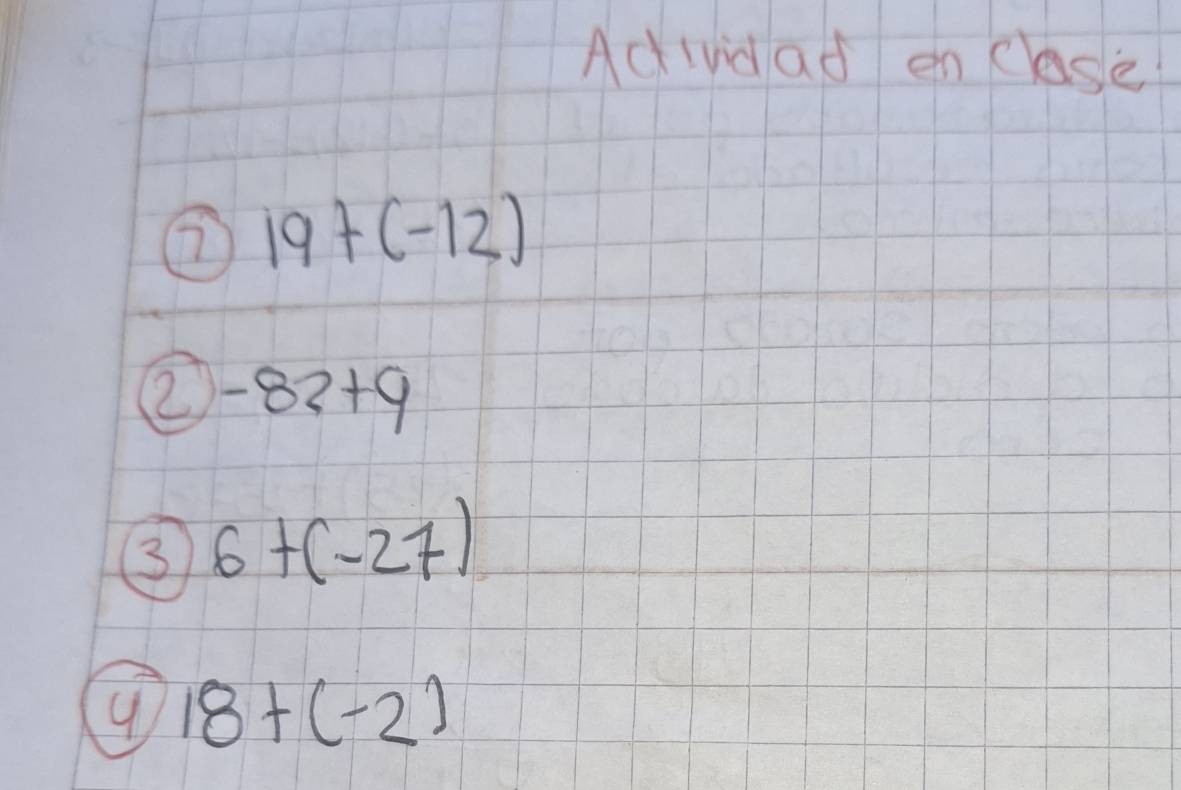 Actividad en clase
① 19+(-12)
② -82+9
③ 6+(-27)
④ 18+(-2)